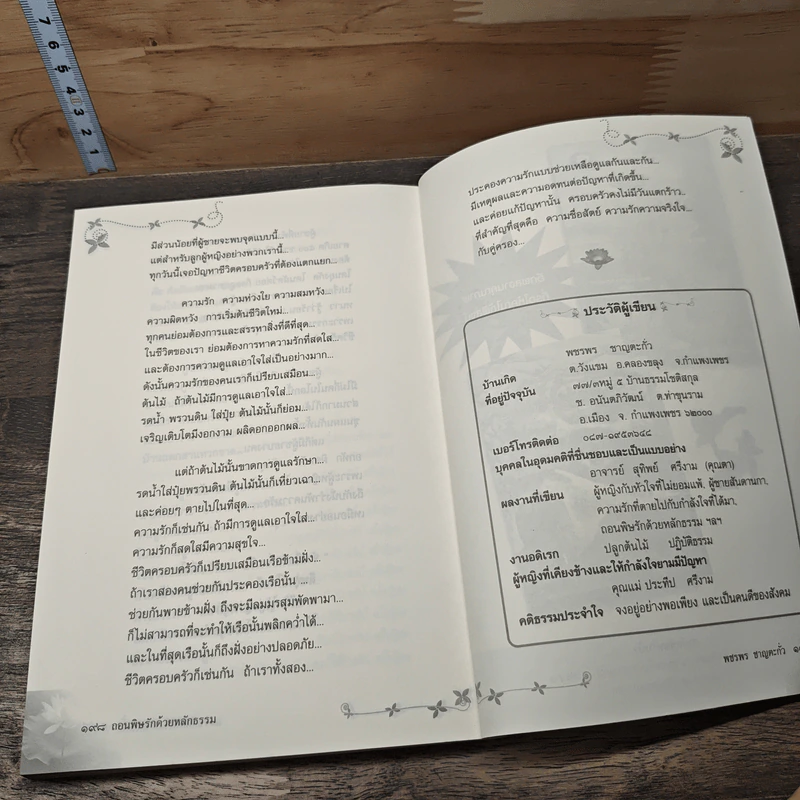 7
6
5
4
3
2
1
มีส่วนน้อยที่ผู้ชายจะพบจุดแบบนี้...
แต่สำหรับลูกผู้หญิงอย่างพวกเรานี้...
ทุกวันนี้เจอปัญหาชีวิตครอบครัวที่ต้องแตกแยก...
ความรัก ความห่วงใย ความสมหวัง...
ความผิดหวัง การเริ่มต้นชีวิตใหม่...
ทุกคนย่อมต้องการและสรรหาสิ่งที่ดีที่สุด...
ในชีวิตของเรา ย่อมต้องการหาความรักที่สดใส...
และต้องการความดูแลเอาใจใส่เป็นอย่างมาก...
ดังนั้นความรักของคนเราก็เปรียบเสมือน...
ต้นไม้ ถ้าต้นไม้มีการดูแลเอาใจใส่...
รดน้ำ พรวนดิน ใส่ปุ๋ย ต้นไม้นั้นก็ย่อม...
เจริญเติบโตมีงอกงาม ผลิดอกออกผล...
แต่ถ้าต้นไม้นั้นขาดการดูแลรักษา...
รดน้ำใส่ปุ๋ยพรวนดิน ต้นไม้นั้นก็เหี่ยวเฉา...
และค่อยๆ ตายไปในที่สุด...
ความรักก็เช่นกัน ถ้ามีการดูแลเอาใจใส่...
ความรักก็สดใสมีความสุขใจ...
ชีวิตครอบครัวก็เปรียบเสมือนเรือข้ามฝั่ง...
ถ้าเราสองคนช่วยกันประคองเรือนั้น ...
ช่วยกันพายข้ามฝั่ง ถึงจะมีลมมรสุมพัดพามา...
ก็ไม่สามารถที่จะทำให้เรือนั้นพลิกคว่ำได้...
และในที่สุดเรือนั้นก็ถึงฝั่งอย่างปลอดภัย...
ชีวิตครอบครัวก็เช่นกัน ถ้าเราทั้งสอง...
๑๙๘ ถอนพิษรักด้วยหลักธรรม
ประคองความรักแบบช่วยเหลือดูแลกันและกัน...
มีเหตุผลและความอดทนต่อปัญหาที่เกิดขึ้น...
และค่อยแก้ปัญหานั้น ครอบครัวคงไม่มีวันแตกร้าว...
ที่สำคัญที่สุดคือ ความซื่อสัตย์ ความรักความจริงใจ...
กับคู่ครอง...
ประวัติผู้เขียน
พชรพร ชาญตะกั่ว
บ้านเกิด ต.วังแขม อ.คลองขลุง จ.กำแพงเพชร
ที่อยู่ปัจจุบัน ๗๗/๓หมู่ ๕ บ้านธรรมโชติสกุล
ซ. อนันตภิวัฒน์ ต.ท่าขุนราม
อ.เมือง จ. กำแพงเพชร ๖๒๐๐๐
เบอร์โทรติดต่อ ๐๘๗-๑๙๕๓๖๔๔
บุคคลในอุดมคติที่ชื่นชอบและเป็นแบบอย่าง
อาจารย์ สุทิพย์ ศรีงาม (คุณตา)
ผลงานที่เขียน ผู้หญิงกับหัวใจที่ไม่ยอมแพ้. ผู้ชายสันดานกา.
ความรักที่ตายไปกับกำลังใจที่ได้มา.
ถอนพิษรักด้วยหลักธรรม ฯลฯ
งานอดิเรก ปลูกต้นไม้ ปฏิบัติธรรม
ผู้หญิงที่เคียงข้างและให้กำลังใจยามมีปัญหา
คุณแม่ ประทีป ศรีงาม
คติธรรมประจำใจ จงอยู่อย่างพอเพียง และเป็นคนดีของสังคม
พชรพร ชาญตะกั่ว